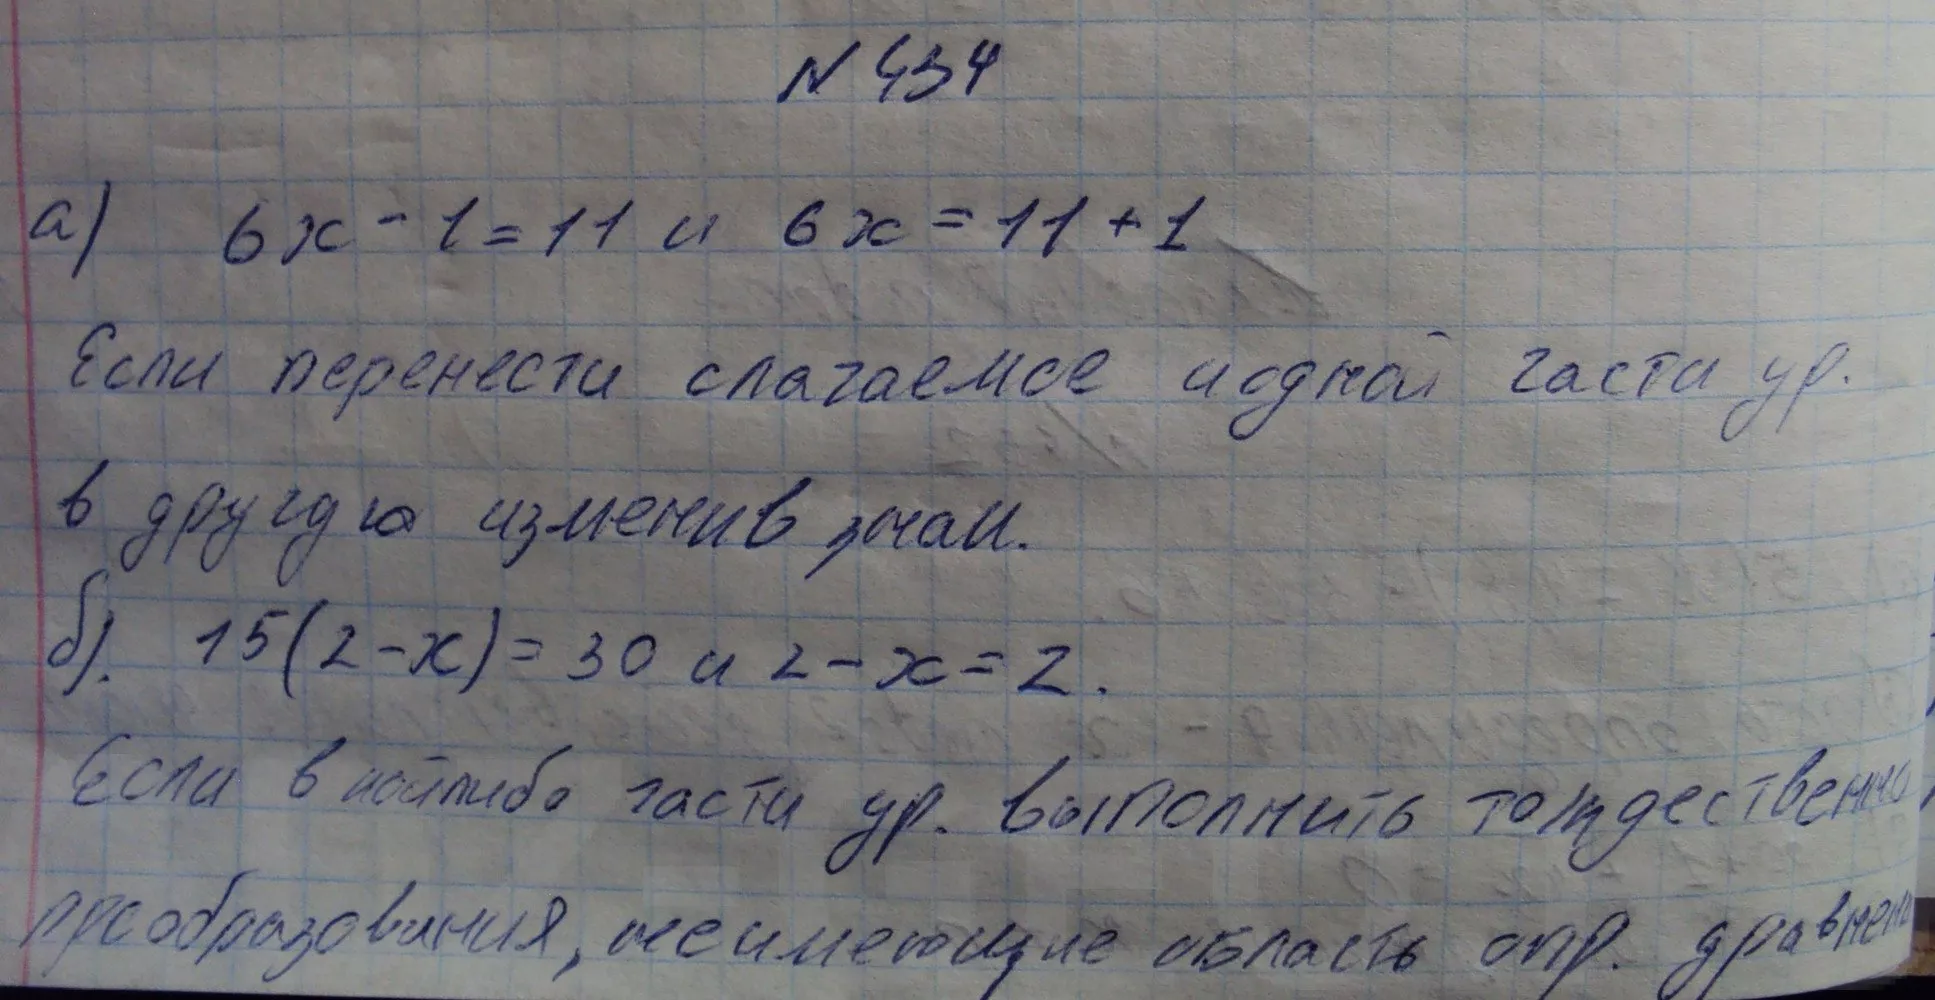 N 434
а) 6x - 1 = 11 и 6x = 11 + 1
Если перенести слагаемое и одной части ур.
в другую изменив знак.
б). 15(2-x) = 30 и 2 - x = 2.
Если в какой либо части ур. выполнить тождественно
преобразования, область опр.